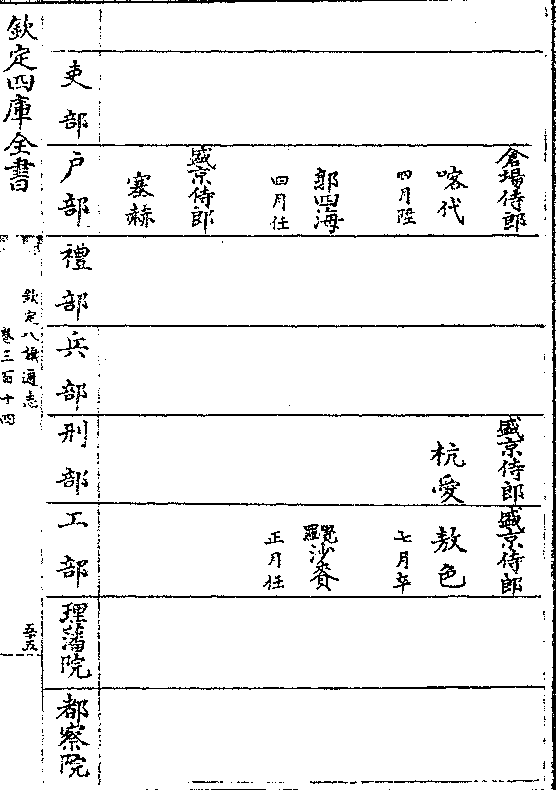 欽定四庫全書
欽定八旗通志
卷三百十四
五十五
吏部
戶部
倉場侍郎
喀代
四月陞
郭四海
四月任
盛京侍郎
塞赫
禮部
兵部
刑部
盛京侍郎
杭愛
工部
盛京侍郎
敖色
七月卒
覺羅沙賚
正月任
理藩院
都察院